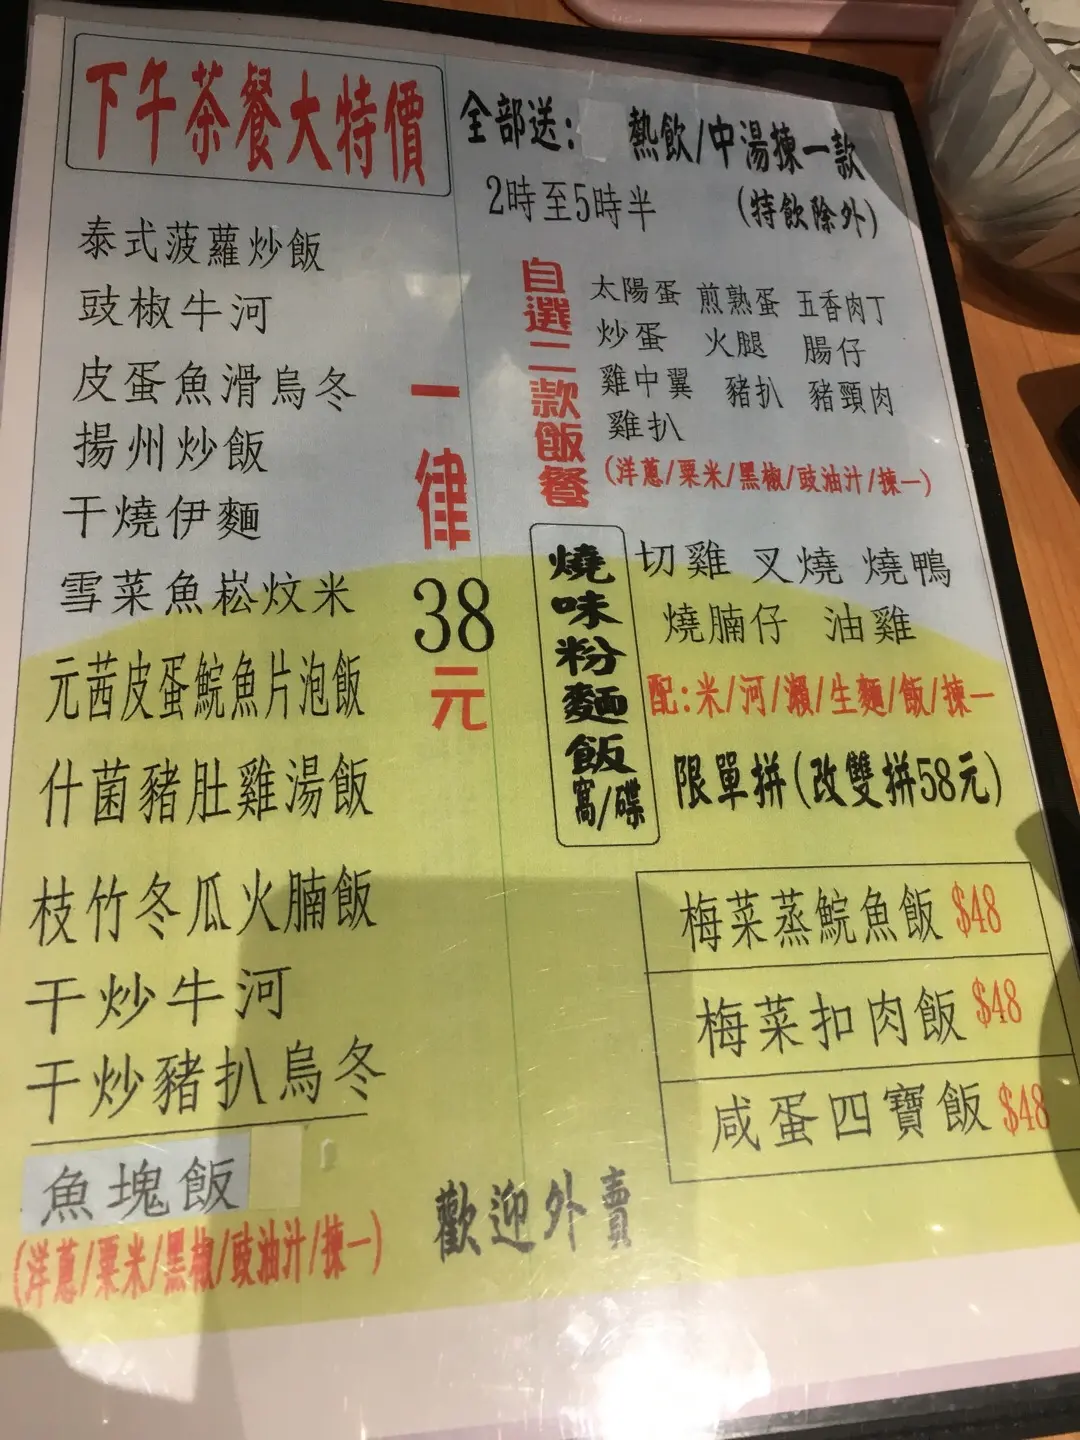 下午茶餐大特價
全部送: 熱飲/中湯揀一款
2時至5時半 (特飲除外)
泰式菠蘿炒飯
豉椒牛河
皮蛋魚滑烏冬
揚州炒飯
干燒伊麵
雪菜魚崧炆米
元茜皮蛋鯇魚片泡飯
什菌豬肚雞湯飯
枝竹冬瓜火腩飯
干炒牛河
干炒豬扒烏冬
魚塊飯
(洋蔥/粟米/黑椒/豉油汁/揀一)
一律38元
自選二款飯餐
太陽蛋 煎熟蛋 五香肉丁
炒蛋 火腿 腸仔
雞中翼 豬扒 豬頸肉
雞扒
(洋蔥/粟米/黑椒/豉油汁/揀一)
燒味粉麵飯窩/碟
切雞 叉燒 燒鴨
燒腩仔 油雞
配:米/河/瀨/生麵/飯/揀一
限單拼(改雙拼58元)
梅菜蒸鯇魚飯 $48
梅菜扣肉飯 $48
咸蛋四寶飯 $48
歡迎外賣